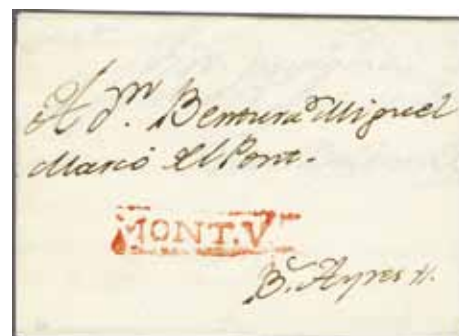 A Dn. Bentura Miguel
Marcó del Pont.
MONT.V
Bs. Ayres